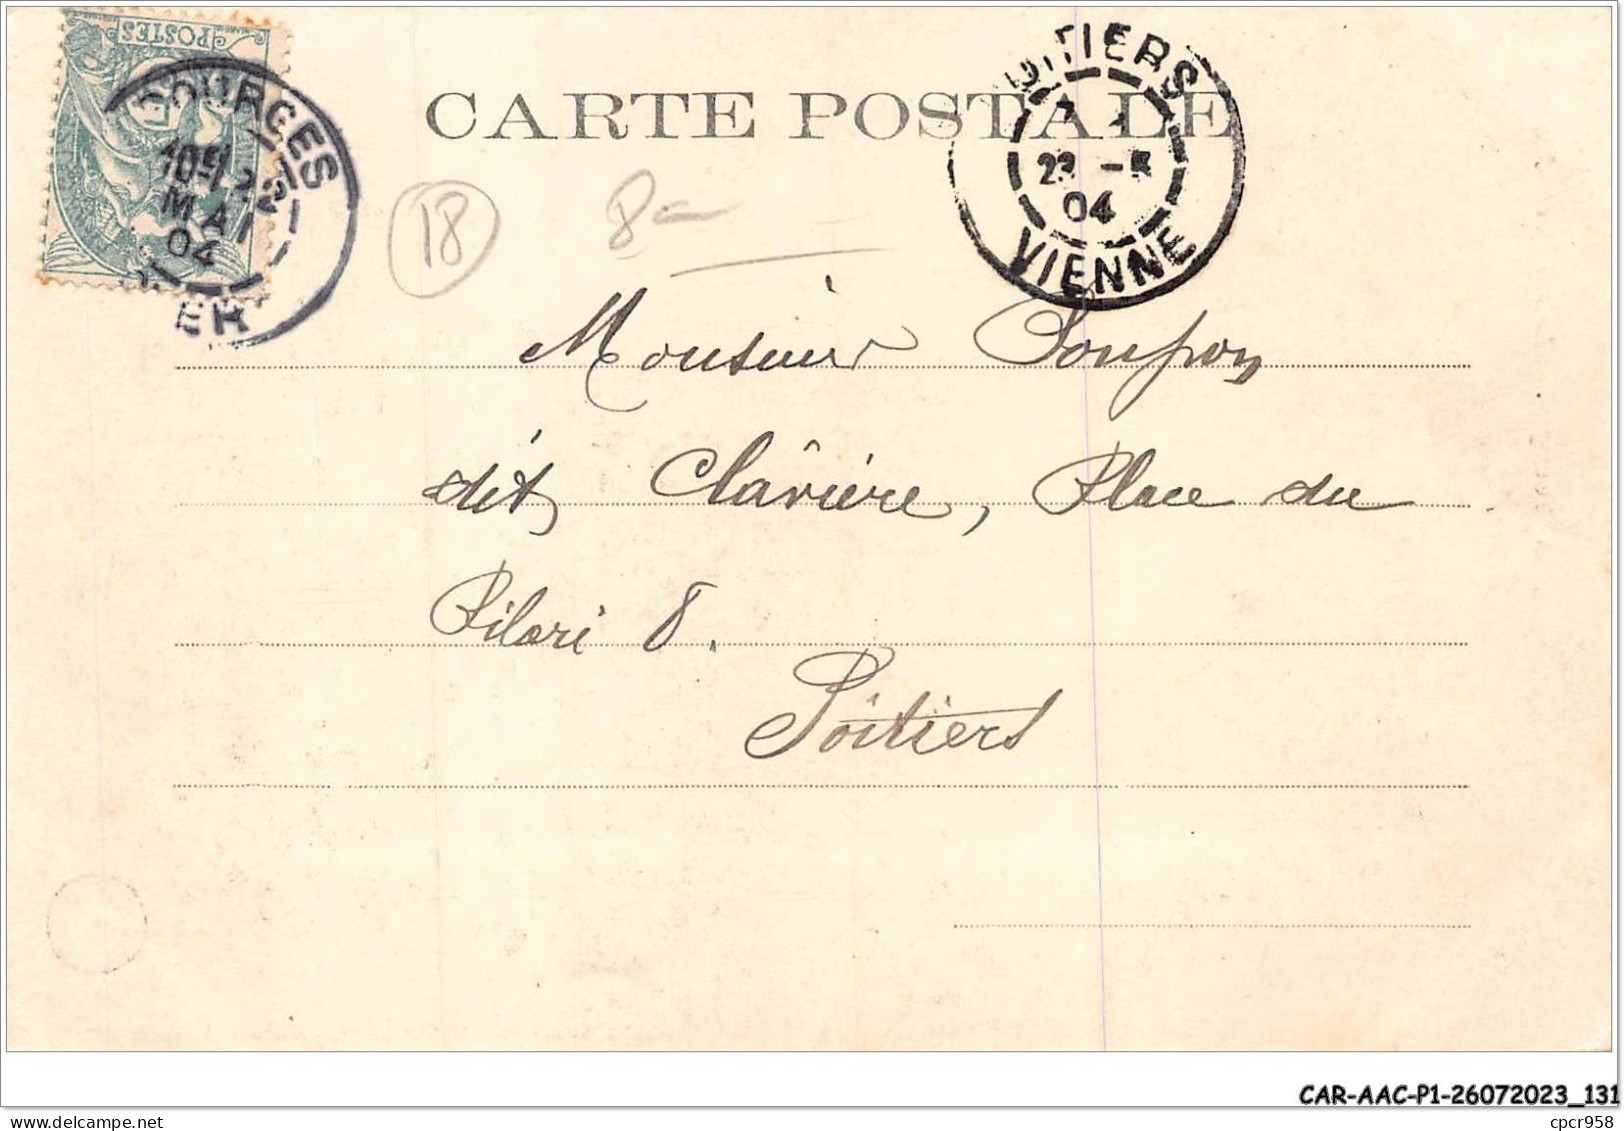 POSTES
BOURGES
10E/22
MAI
04
CHER
CARTE POSTALE
POITIERS
23 -5
04
VIENNE
18
8
Monsieur Soupon
dit Clâvière, Place du
Pilori 8.
Poîtiers
CAR-AAC-P1-26072023_131
cpcr958